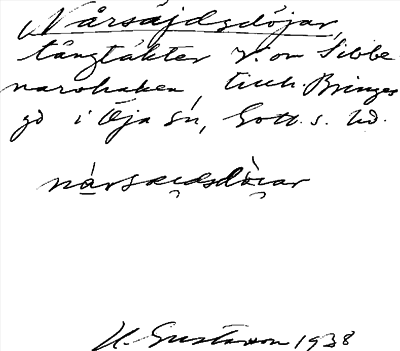 Nårsäjdsdöjar,
tångtäkter v. om Sibbe
narohaken, tillh. Bringes
gd i Öja sn, Gotl. s. hd.
nårsæidsdöiar
H. Gustavson 1938